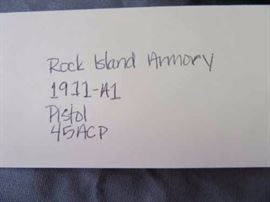 Rock Island Armory
1911-A1
Pistol
45ACP